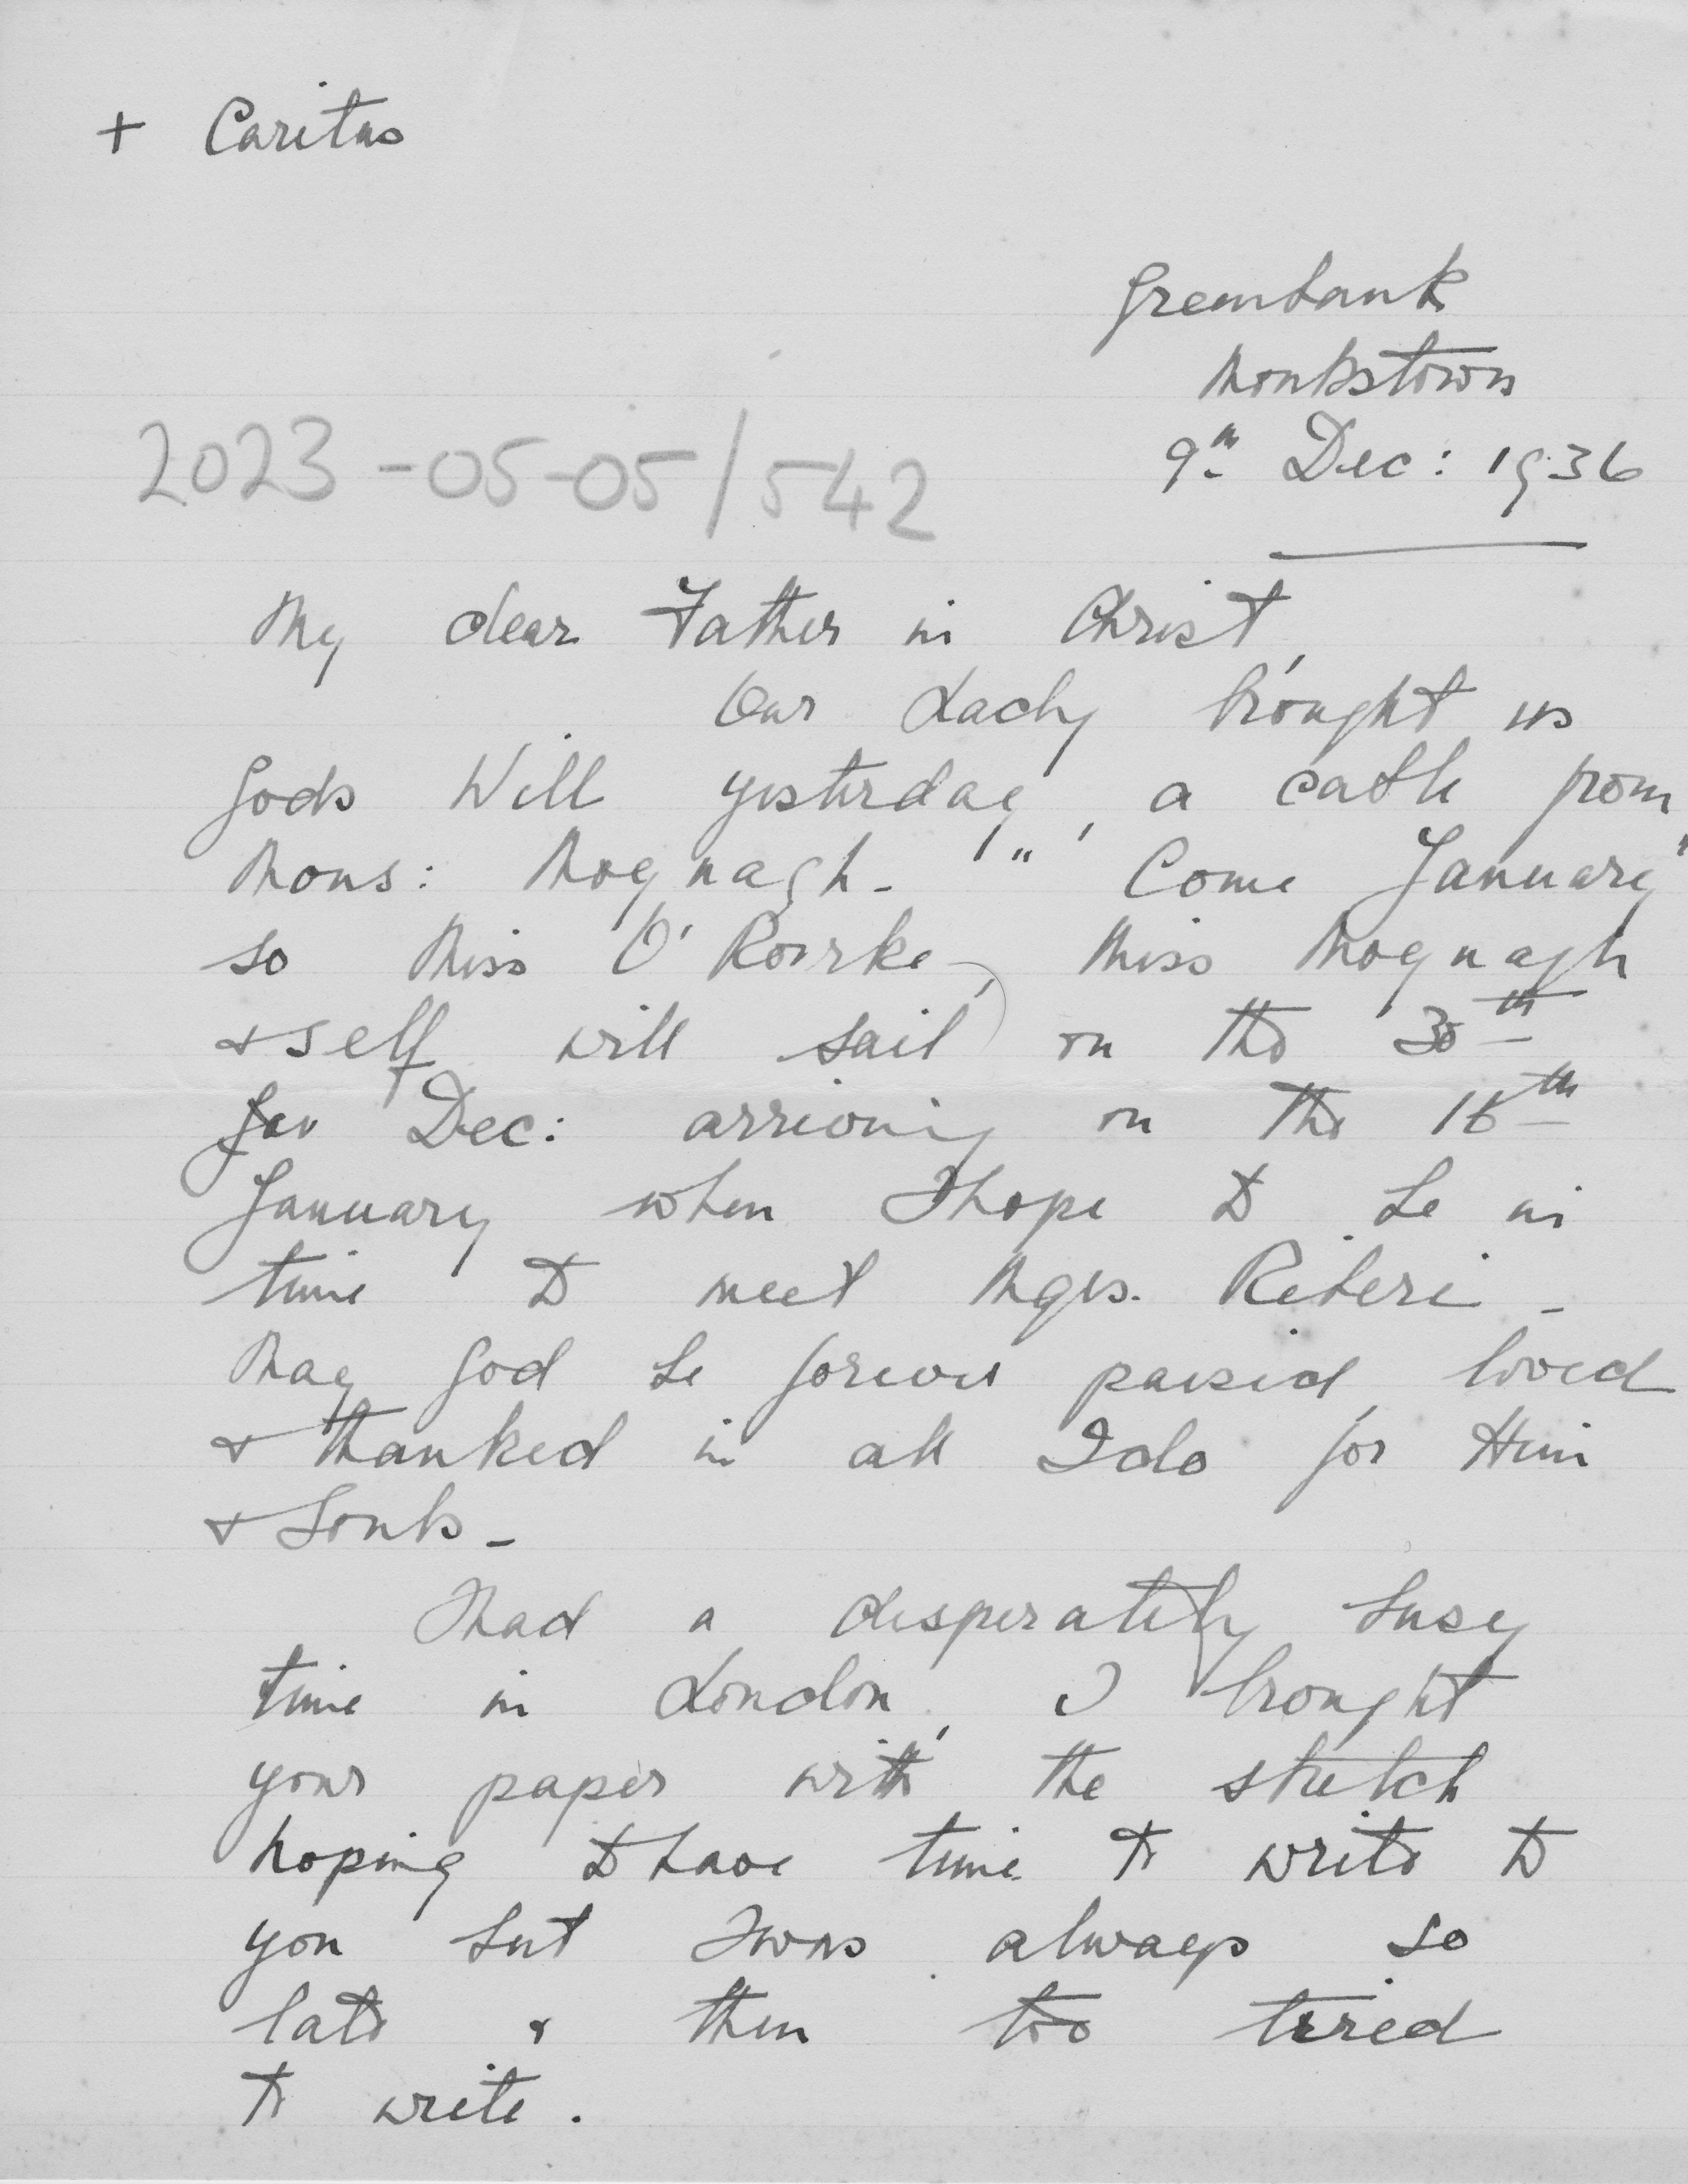 + Caritas
Greenbank
Monkstown
9th Dec: 1936
2023-05-05/542
My dear Father in Christ,
Our Lady brought us
Gods Will yesterday, a cable from
Mons: Moynagh. " Come January"
so Miss O'Rourke, Miss Moynagh
& self will sail on the 30th
Jan Dec: arriving on the 16th
January when I hope to be in
time to meet Mgr. Riberi -
May God be forever praised, loved
& thanked in all I do for Him
& Souls -
I had a desperately busy
time in London, I brought
your paper with the sketch
hoping to have time to write to
you but I was always so
late & then too tired
to write.